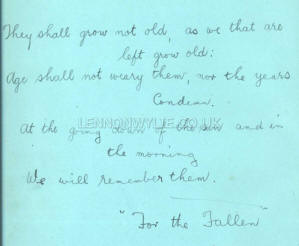 They shall grow not old, as we that are
left grow old:
Age shall not weary them, nor the years
Condemn.
At the going down of the sun and in
LENNONWYLIE.CO.UK
the morning
We will remember them.
"For the Fallen"